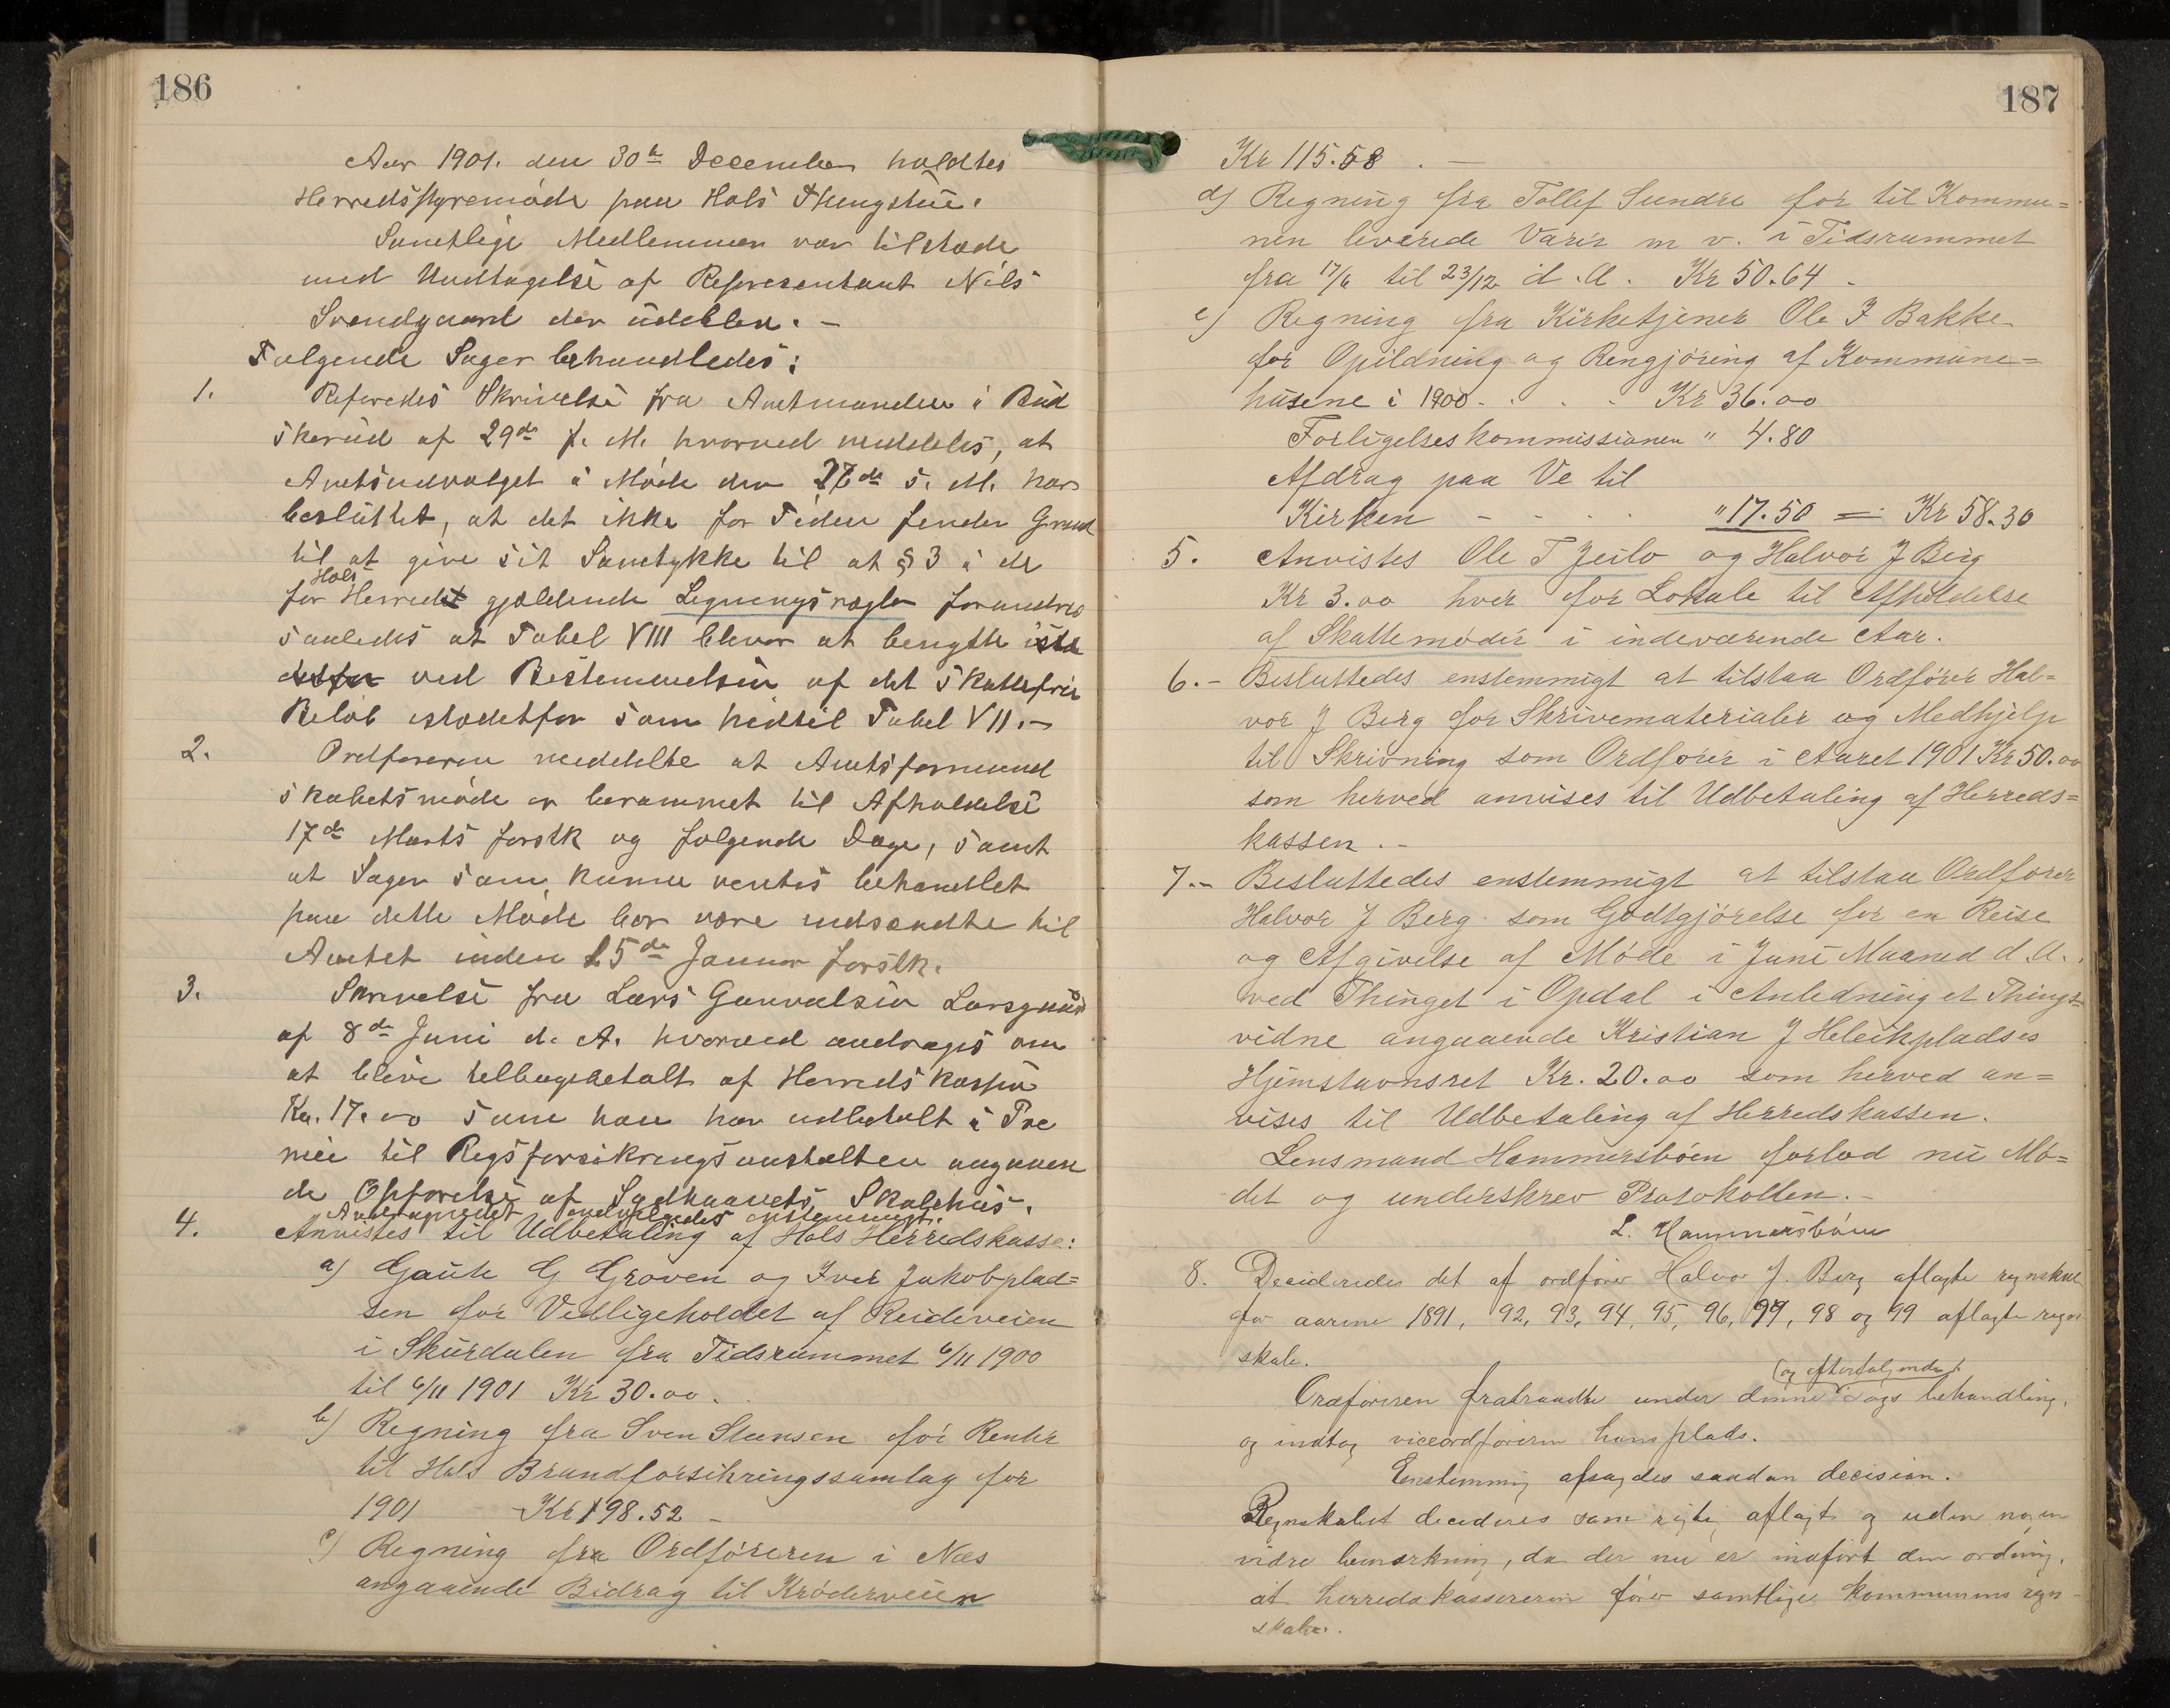 186
Aar 1901. den 30te December holdtes
Herredsstyremøde paa Hols Thingstue.
Samtlige Medlemmer var tilstæde
med Undtagelse af Representant Nils
Svendgaard der udeblev. –
Følgende Sager behandledes:
1. Referedes Skrivelse fra Amtmanden i Bud
skerud af 29de f. M. hvorved meddeles, at
Amtsudvalget i Møde den 27de s. M. har
besluttet, at det ikke for Tiden finder Grund
til at give sit Samtykke til at § 3 i de
for Hols Herred gjældende Ligningsregler forandres
saaledes at Tabel VIII bliver at benytte
ved Bestemmelsen af det skattefrie
Beløb istedetfor som hidtil Tabel VII. –
2. Ordføreren meddelte at Amtsformand
skabetsmøde er berammet til Afholdelse
17de Marts førstk og følgende Dage, samt
at Sager som kunne ventes behandlet
paa dette Møde bør være indsendte til
Amtet inden 15de Januar førstk.
3. Skrivelse fra Lars Gunvalsen Larsgaard
af 8de Juni d. A. hvorved andrages om
at blive tilbagebetalt af Herredskassen
Kr. 17.00 som han har udbetalt i Præ
mie til Rigsforsikringsanstalten angaaen
de Opførelse af Sudhaavets Skolehus.
Andragendet indvilgedes enstemmigt.
4. Anvistes til Udbetaling af Hols Herredskasse:
a) Gaute G Groven og Iver Jakobplad=
sen for Vedligeholdet af Rideveien
i Skurdalen fra Tidsrummet 6/11 1900
til 6/11 1901 Kr 30.00.
b) Regning fra Sven Steensen for Renter
til Hols Brandforsikringssamlag for
1901 – Kr 198.52 –
c) Regning fra Ordføreren i Næs
angaaende Bidrag til Krøderveien
187
Kr 115.58. –
d) Regning fra Tollef Sundre for til Kommu=
nen leverede Varer m v. i Tidsrummet
fra 17/6 til 23/12 d. A. Kr 50.64 –
e) Regning fra Kirketjener Ole I Bakke
for Opildning og Rengjøring af Kommune=
husene i 1900 . . . . Kr 36.00
Forligelseskommissionen " 4.80
Afdrag paa Ve til
Kirken - - . . . " 17.50 = Kr 58.30
5. Anvistes Ole T Jeilo og Halvor J Berg
Kr 3.00 hver for Lokale til Afholdelse
af Skattemøder i indeværende Aar.
6. – Besluttedes enstemmigt at tilstaa Ordfører Hal=
vor J Berg for Skrivematerialer og Medhjelp
til Skrivning som Ordfører i Aaret 1901 Kr 50.00
som herved anvises til Udbetaling af Herreds=
kassen. –
7. – Besluttedes enstemmigt at tilstaa Ordfører
Halvor J Berg som Godtgjørelse for en Reise
og Afgivelse af Møde i Juni Maaned d. A.
ved Thinget i Opdal i Anledning et Things=
vidne angaaende Kristian J Heleikpladses
Hjemstavnsret Kr. 20.00 som herved an=
vises til Udbetaling af Herredskassen.
Lensmand Hammersbøen forlod nu Mø=
det og underskrev Protokollen. –
L. Hammersbøen
8. Desideredes det af ordfører Halvor J. Berg aflagte regnskab
for aarene 1891, 92, 93, 94, 95, 96, 97, 98 og 99 aflagte regn
skab.
(og efterfølgende)
Ordføreren fratraadte under denne sags behandling,
og indtog viceordføreren hans plads.
Enstemmig afsagdes saadan decision.
Regnskabet decideres som rigtig aflagt og uden nogen
vidre bemærkning, da der nu er indført den ordning,
at herredskassereren fører samtlige kommunens regn-
skaber.